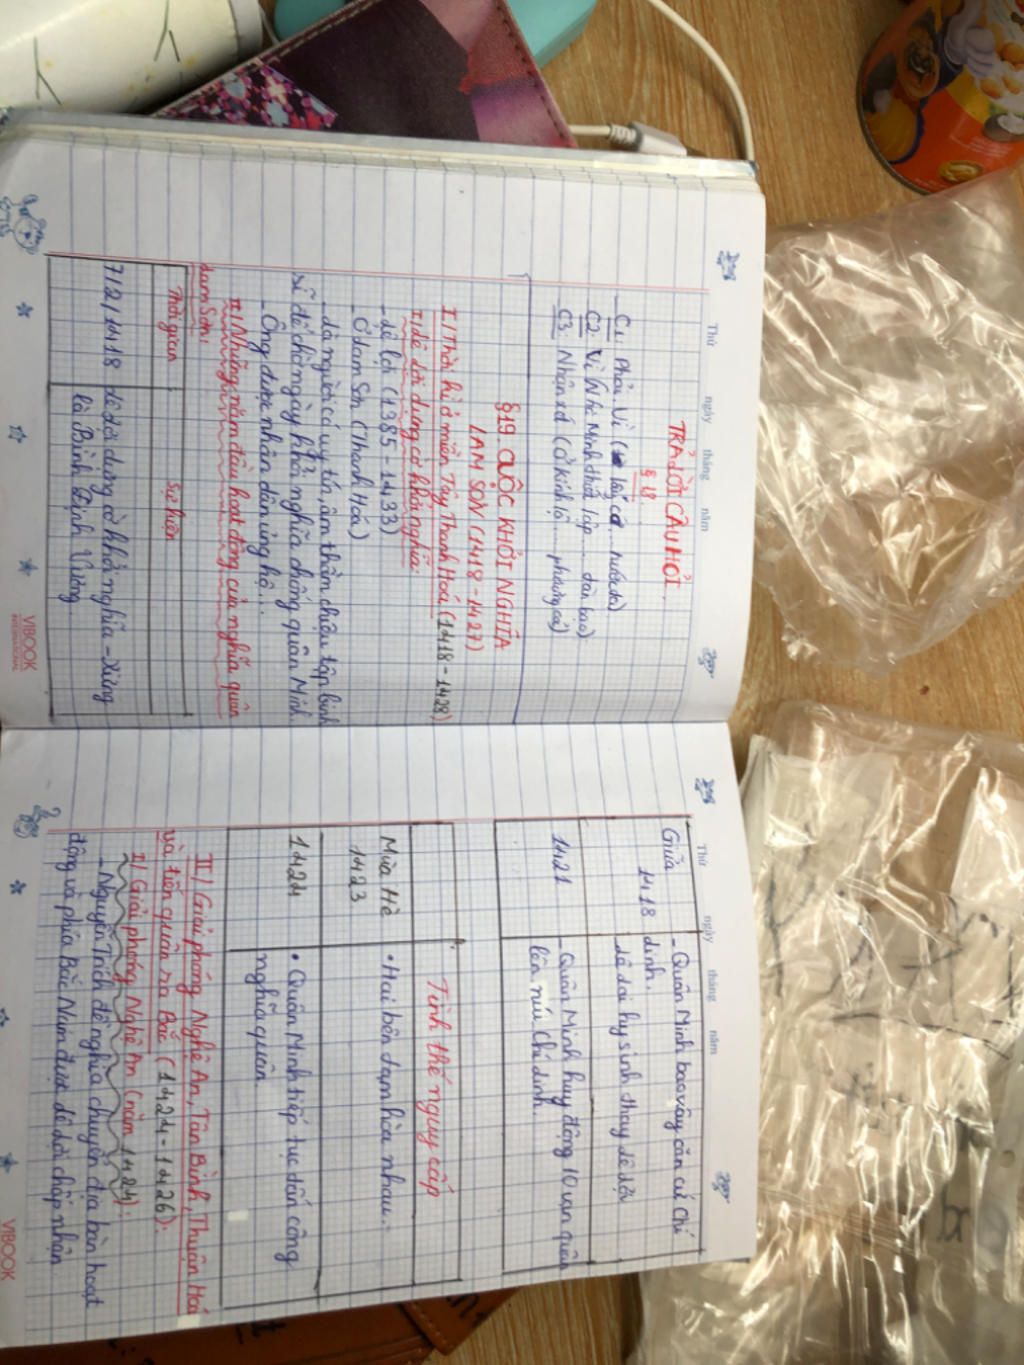 Thứ ngày tháng năm
TRẢ LỜI CÂU HỎI.
§ 18.
- C1: Phải Vì (lấy cớ ... nước ta)
- C2: Vì Nhà Minh thiết lập ... dân bạo)
- C3: Nhận xét (Ở kinh lộ ... phương cả)
§19. CUỘC KHỞI NGHĨA
LAM SƠN (1418 - 1427)
I/ Thời kì ở miền Tây Thanh Hoá (1418 - 1423)
1. Lê Lợi dựng cờ khởi nghĩa:
- Lê Lợi (1385 - 1433)
- Ở Lam Sơn (Thanh Hóa)
- Là người có uy tín, âm thầm chiêu tập binh
sĩ để chờ ngày khởi nghĩa chống quân Minh.
- Ông được nhân dân ủng hộ...
2/ Những năm đầu hoạt động của nghĩa quân
Lam Sơn:
Thời gian Sự kiện
7/2/1418 Lê Lợi dựng cờ khởi nghĩa - Xưng
là Bình Định Vương
VIBOOK
Thứ ngày tháng năm
Giữa - Quân Minh bao vây căn cứ Chí
1418 Linh.
- Lê Lai hy sinh thay Lê Lợi
1421 - Quân Minh huy động 10 vạn quân
lên núi Chí Linh.
Tình thế nguy cấp
Mùa Hè • Hai bên tạm hòa nhau.
1423
1424 • Quân Minh tiếp tục tấn công
nghĩa quân
II/ Giải phóng Nghệ An, Tân Bình, Thuận Hoá
và tiến quân ra Bắc (1424 - 1426).
1/ Giải phóng Nghệ An (năm 1424).
- Nguyễn Trích đề nghĩa chuyển địa bàn hoạt
động và phía Bắc Nam được Lê Lợi chấp nhận
VIBOOK